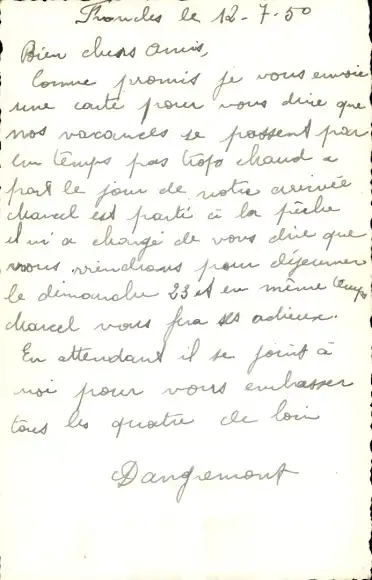 le 12-7-50
Bien chers Amis,
Comme promis je vous envoie
une carte pour vous dire que
nos vacances se passent par
un temps pas trop chaud a
part le jour de notre arrivée
Marcel est parti à la pêche
il m'a chargé de vous dire que
nous viendrons pour déjeuner
le dimanche 23 et en même temps
Marcel vous fera ses adieux.
En attendant il se joint à
moi pour vous embasser
tous les quatre de loin
Dangremont